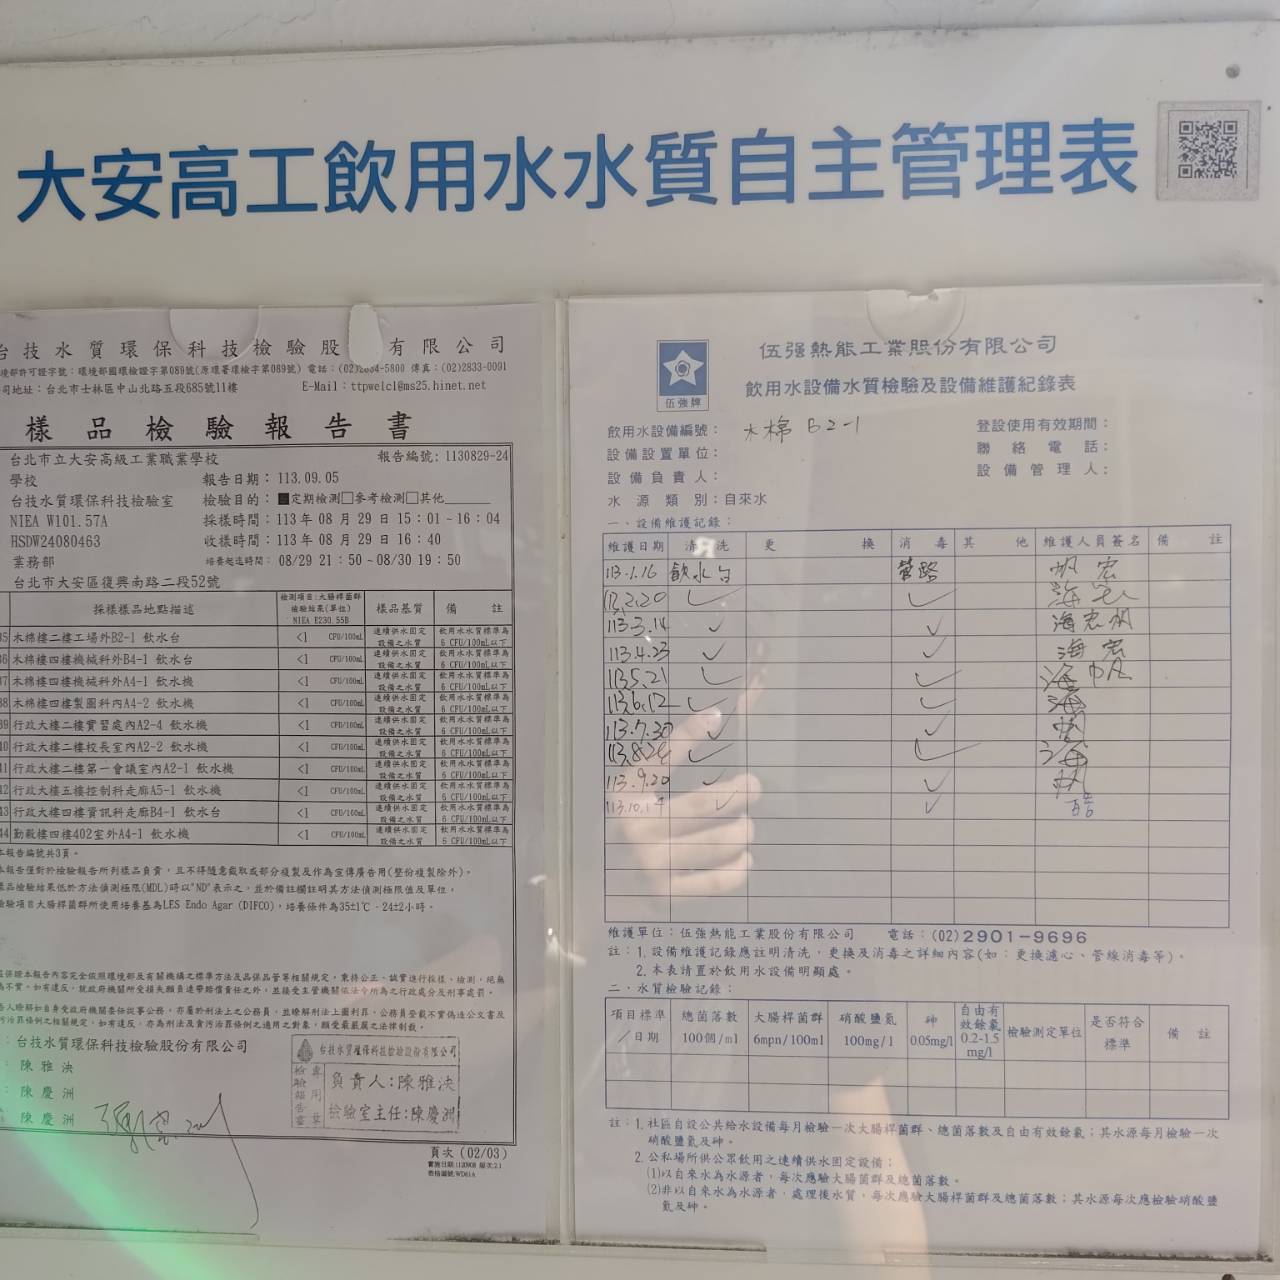 大安高工飲用水水質自主管理表
台技水質環保科技檢驗股 有限公司
境部許可證字號：環境部國環檢證字第089號(原環署環檢字第089號) 電話：(02)2834-5800 傳真：(02)2833-0091
司地址：台北市士林區中山北路五段685號11樓 E-Mail：ttpwelcl@ms25.hinet.net
樣品檢驗報告書
台北市立大安高級工業職業學校 報告編號：1130829-24
學校 報告日期：113.09.05
台技水質環保科技檢驗室 檢驗目的：■定期檢測□參考檢測□其他
NIEA W101.57A 採樣時間：113 年 08 月 29 日 15：01~16：04
HSDW24080463 收樣時間：113 年 08 月 29 日 16：40
業務部 培養起迄時間：08/29 21：50~08/30 19：50
台北市大安區復興南路二段52號
採樣樣品地點描述 檢測項目：大腸桿菌群 檢驗結果(單位) NIEA E230.55B 樣品基質 備註
35 木棉樓二樓工場外B2-1 飲水台 <1 CFU/100mL 連續供水固定設備之水質 飲用水水質標準為6 CFU/100mL以下
36 木棉樓四樓機械科外B4-1 飲水台 <1 CFU/100mL 連續供水固定設備之水質 飲用水水質標準為6 CFU/100mL以下
37 木棉樓四樓機械科外A4-1 飲水機 <1 CFU/100mL 連續供水固定設備之水質 飲用水水質標準為6 CFU/100mL以下
38 木棉樓四樓製圖科內A4-2 飲水機 <1 CFU/100mL 連續供水固定設備之水質 飲用水水質標準為6 CFU/100mL以下
39 行政大樓二樓實習處內A2-4 飲水機 <1 CFU/100mL 連續供水固定設備之水質 飲用水水質標準為6 CFU/100mL以下
40 行政大樓二樓校長室內A2-2 飲水機 <1 CFU/100mL 連續供水固定設備之水質 飲用水水質標準為6 CFU/100mL以下
41 行政大樓二樓第一會議室內A2-1 飲水機 <1 CFU/100mL 連續供水固定設備之水質 飲用水水質標準為6 CFU/100mL以下
42 行政大樓五樓控制科走廊A5-1 飲水機 <1 CFU/100mL 連續供水固定設備之水質 飲用水水質標準為6 CFU/100mL以下
43 行政大樓四樓資訊科走廊B4-1 飲水台 <1 CFU/100mL 連續供水固定設備之水質 飲用水水質標準為6 CFU/100mL以下
44 勤毅樓四樓402室外A4-1 飲水機 <1 CFU/100mL 連續供水固定設備之水質 飲用水水質標準為6 CFU/100mL以下
本報告編號共3頁。
本報告僅對於檢驗報告所列樣品負責，且不得隨意截取或部分複製及作為宣傳廣告用(整份複製除外)。
樣品檢驗結果低於方法偵測極限(MDL)時以"ND"表示之，並於備註欄註明其方法偵測極限值及單位。
檢驗項目大腸桿菌群所使用培養基為LES Endo Agar (DIFCO)，培養條件為35±1℃、24±2小時。
保證本報告內容完全依照環境部及有關機構之標準方法及品保品管等相關規定，秉持公正、誠實進行採樣、檢測，絕無
為不實，如有違反，就政府機關所受損失願負連帶賠償責任之外，並接受主管機關依法令所為之行政處分及刑事處罰。
告人瞭解如自身受政府機關委任從事公務，亦屬於刑法上之公務員，並瞭解刑法上圖利罪、公務員登載不實偽造公文書及
污治罪條例之相關規定，如有違反，亦為刑法及貪污治罪條例之適用之對象，願受最嚴厲之法律制裁。
：台技水質環保科技檢驗股份有限公司
：陳雅泱
：陳慶洲
：陳慶洲
台技水質環保科技檢驗股份有限公司
檢驗報告書專用章
負責人：陳雅泱
檢驗室主任：陳慶洲
頁次 (02/03)
伍強牌
伍強熱能工業股份有限公司
飲用水設備水質檢驗及設備維護紀錄表
飲用水設備編號：木棉 B2-1 登設使用有效期間：
設備設置單位： 聯絡電話：
設備負責人： 設備管理人：
水源類別：自來水
一、設備維護記錄：
維護日期 清洗 更換 消毒 其他 維護人員簽名 備註
113.1.16 飲水台 管路 帆宏
113.2.20 ✓ ✓
113.3.14 ✓ ✓ 海宏帆
113.4.23 ✓ ✓ 海宏
113.5.21 ✓ ✓ 海帆
113.6.12 ✓ ✓ 海
113.7.30 ✓ ✓ 帆
113.8.24 ✓ ✓ 海
113.9.20 ✓ ✓ 帆
113.10.17 ✓ ✓
維護單位：伍強熱能工業股份有限公司 電話：(02)2901-9696
註：1.設備維護記錄應註明清洗，更換及消毒之詳細內容(如：更換濾心、管線消毒等)。
2.本表請置於飲用水設備明顯處。
二、水質檢驗記錄：
項目標準／日期 總菌落數 100個/ml 大腸桿菌群 6mpn/100ml 硝酸鹽氮 100mg/l 砷 0.05mg/l 自由有效餘氯 0.2-1.5 mg/l 檢驗測定單位 是否符合標準 備註
註：1.社區自設公共給水設備每月檢驗一次大腸桿菌群、總菌落數及自由有效餘氯；其水源每月檢驗一次
硝酸鹽氮及砷。
2.公私場所供公眾飲用之連續供水固定設備：
(1)以自來水為水源者，每次應驗大腸桿菌群及總菌落數。
(2)非以自來水為水源者，處理後水質，每次應驗大腸桿菌群及總菌落數；其水源每次應檢驗硝酸鹽
氮及砷。